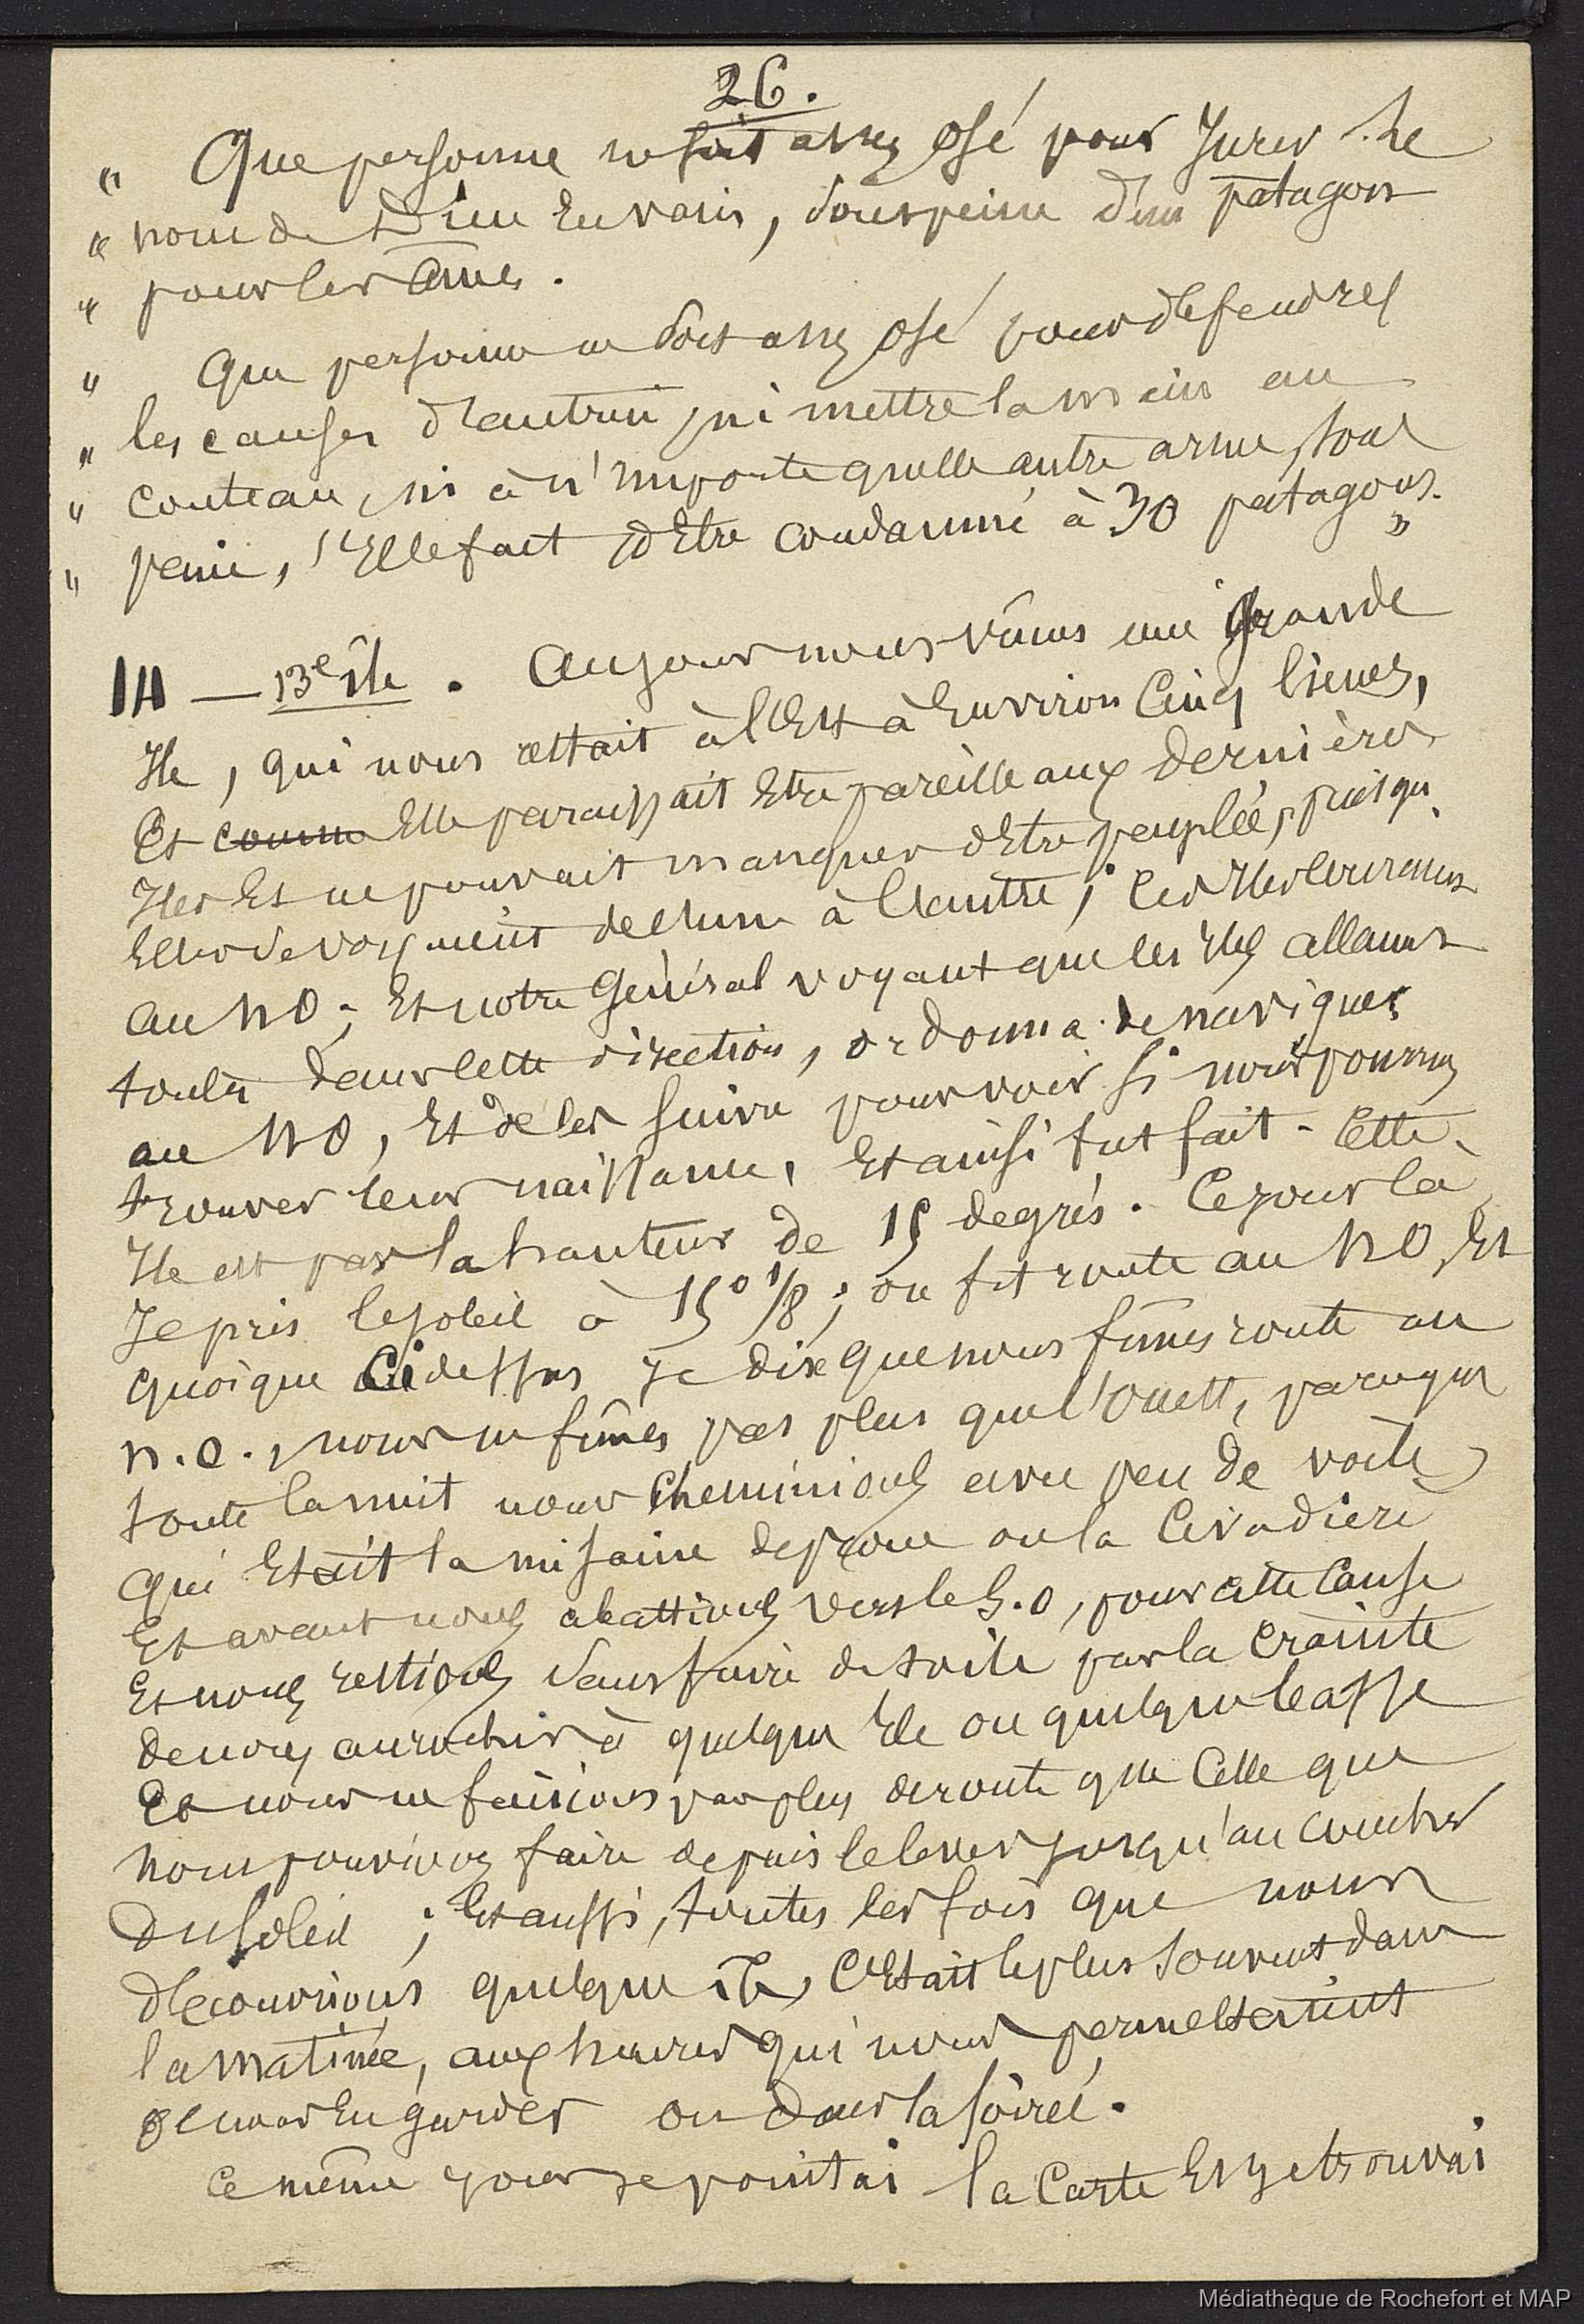 26.
" Que personne ne soit assez osé pour Jurer le
" nom de Dieu En vain, sous peine d'un patagon
" pour les âmes.
" Que personne ne soit assez osé pour défendre
" les causes d'autrui, ni mettre la main au
" couteau, ni à n'importe quelle autre arme, sous
" peine, s'Il le fait d'Etre condamné à 30 patagons. "
14 — 13e île. Au jour nous vîmes une Grande
Ile, qui nous restait à l'Est à Environ Cinq lieues,
Et comme Elle paraissait Etre pareille aux dernières
Iles Et ne pouvait manquer d'Etre peuplée, puisqu'
Elles se voyaient de l'une à l'autre; Ces Iles Couraient
au NO; Et notre Général voyant que les Iles allaient
toutes dans cette direction, ordonna de naviguer
au NO, Et de les suivre pour voir si nous pourrions
trouver leur naissance, Et ainsi fut fait. Cette
Ile est par la hauteur de 15 degrés. Ce jour là
Je pris le soleil à 15° 1/8; on fit route au NO, Et
quoique Ci dessus Je dise que nous fîmes route au
N.O., nous ne fîmes pas plus que l'Ouest, parce que
toute la nuit nous Cheminions avec peu de voile
qui Etait la misaine de proue ou la Civadière
Et avant nous abattions vers le S.O, pour cette Cause
Et nous restions sans faire de voile par la Crainte
de nous accrocher à quelque Ile ou quelque basse
Et nous ne faisions pas plus de route que Celle que
nous pouvions faire depuis le lever jusqu'au coucher
du soleil; Et aussi, toutes les fois que nous
découvrions quelque île, C'Etait le plus souvent dans
la matinée, aux heures qui nous permettaient
de nous En garder ou dans la soirée.
Ce même jour je pointai la Carte Et je trouvai
Médiathèque de Rochefort et MAP